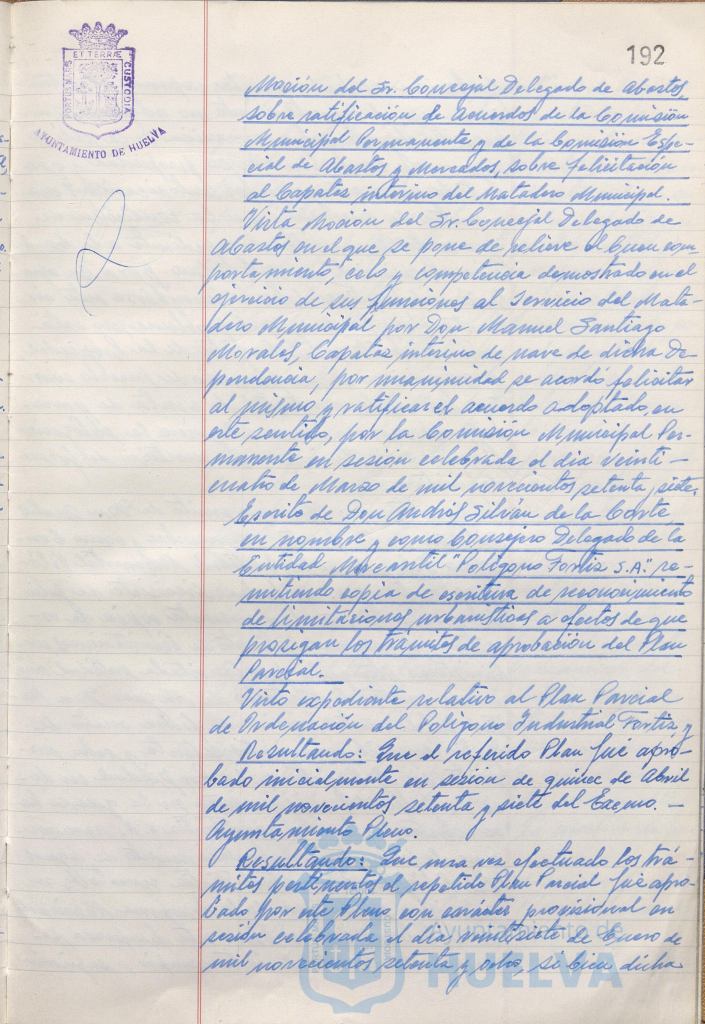 192
PORTUS MARIS
ET TERRÆ
CUSTODIA
AYUNTAMIENTO DE HUELVA
Moción del Sr. Concejal Delegado de Abastos,
sobre ratificación de acuerdos de la Comisión
Municipal Permanente y de la Comisión Espe-
cial de Abastos y Mercados, sobre felicitación
al Capataz interino del Matadero Municipal.
Vista Moción del Sr. Concejal Delegado de
Abastos en el que se pone de relieve el buen com-
portamiento, celo y competencia demostrado en el
ejercicio de sus funciones al Servicio del Mata-
dero Municipal por Don Manuel Santiago
Morales, Capataz interino de nave de dicha De
pendencia, por unanimidad se acordó felicitar
al mismo y ratificar el acuerdo adoptado, en
este sentido, por la Comisión Municipal Per-
manente en sesión celebrada el día veinti-
cuatro de Marzo de mil novecientos setenta y siete.
Escrito de Don Andrés Silván de la Corte,
en nombre y como Consejero Delegado de la
Entidad Mercantil "Polígono Fortiz S.A." re-
mitiendo copia de escritura de reconocimiento
de limitaciones urbanísticas a efectos de que
prosigan los trámites de aprobación del Plan
Parcial.
Visto expediente relativo al Plan Parcial
de Ordenación del Polígono Industrial Fortiz, y
Resultando: Que el referido Plan fue apro-
bado inicialmente en sesión de quince de Abril
de mil novecientos setenta y siete del Excmo. -
Ayuntamiento Pleno.
Resultando: Que una vez efectuado los trá-
mites pertinentes el repetido Plan Parcial fue apro-
bado por este Pleno con carácter provisional en
sesión celebrada el día veintisiete de Enero de
mil novecientos setenta y ocho, si bien dicha
Ayuntamiento de
HUELVA